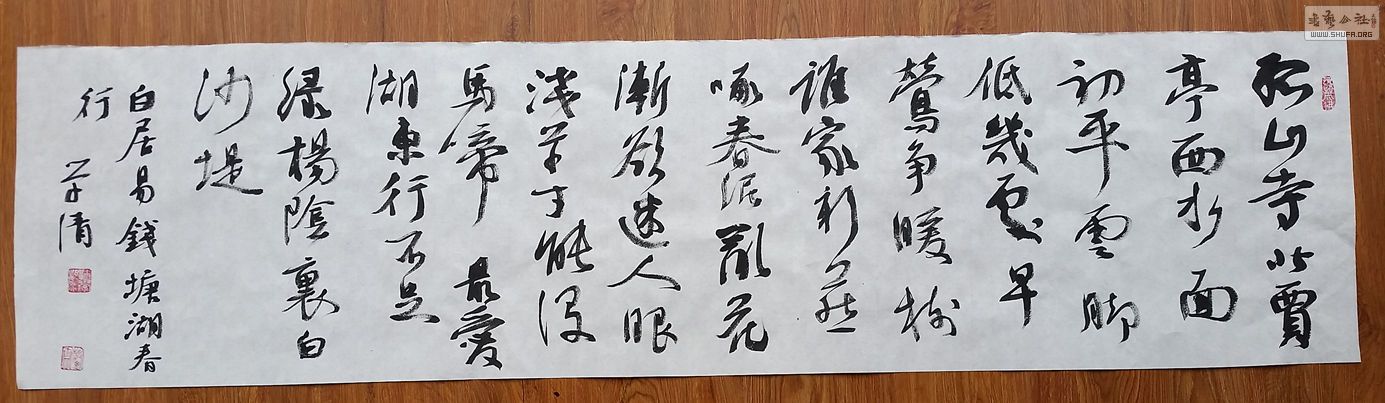 孤山寺北賈
亭西水面
初平雲脚
低幾處早
鶯争暖樹
誰家新燕
啄春泥亂花
漸欲迷人眼
淺草才能没
馬蹄最愛
湖東行不足
緑楊陰裏白
沙堤
白居易錢塘湖春
行
学清
書藝公社
WWW.SHUFA.ORG